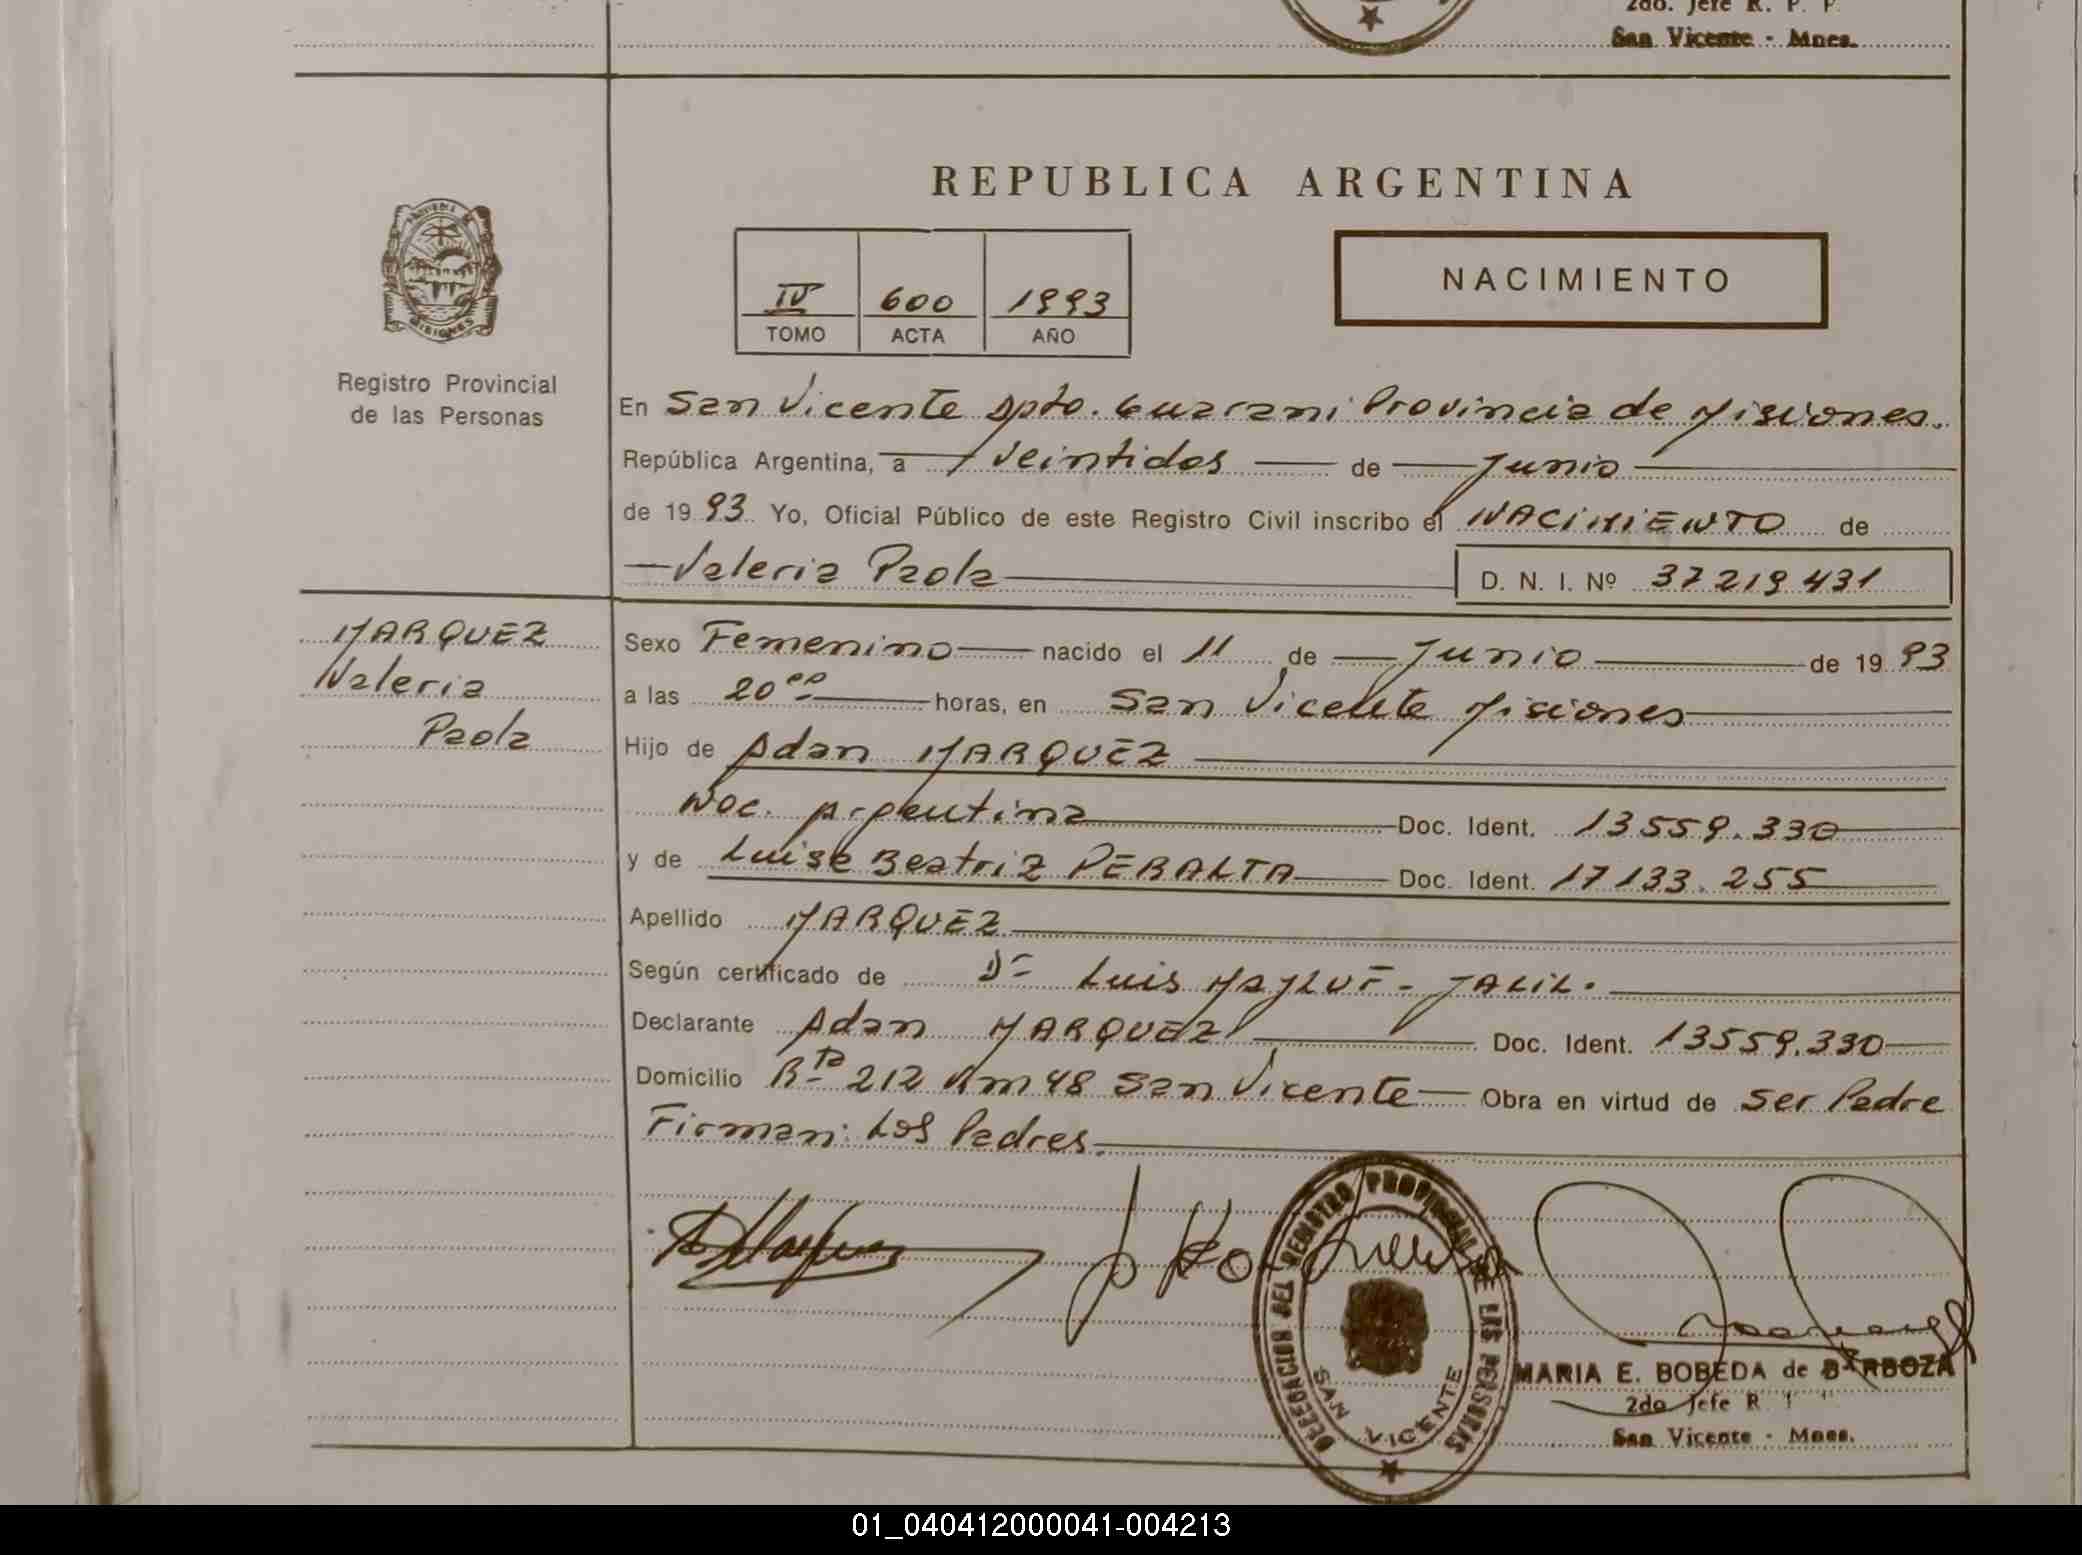 2do. Jefe R. P. P.
San Vicente - Mnes.
REPUBLICA ARGENTINA
NACIMIENTO
IV 600 1993
TOMO ACTA AÑO
PROVINCIA DE
MISIONES
Registro Provincial
de las Personas
En San Vicente Dpto. Guarani Provincia de Misiones.
República Argentina, a veintidos de Junio
de 1993 Yo, Oficial Público de este Registro Civil inscribo el NACIMIENTO de
Valeria Paola D. N. I. Nº 37219431
MARQUEZ
Valeria
Paola
Sexo Femenino nacido el 11 de Junio de 1993
a las 20 00 horas, en San Vicente Misiones
Hijo de Adan MARQUEZ
Nac. Argentina Doc. Ident. 13559.330
y de Luisa Beatriz PERALTA Doc. Ident. 17133.255
Apellido MARQUEZ
Según certificado de Dr Luis MAYLUF - JALIL.
Declarante Adan MARQUEZ Doc. Ident. 13559.330
Domicilio Rta 212 Km 48 San Vicente Obra en virtud de Ser Padre
Firman: Los Padres.
DELEGACION DEL REGISTRO PROVINCIAL DE LAS PERSONAS
SAN VICENTE
MARIA E. BOBEDA de BARBOZA
2do Jefe R
San Vicente - Mnes.
01_040412000041-004213